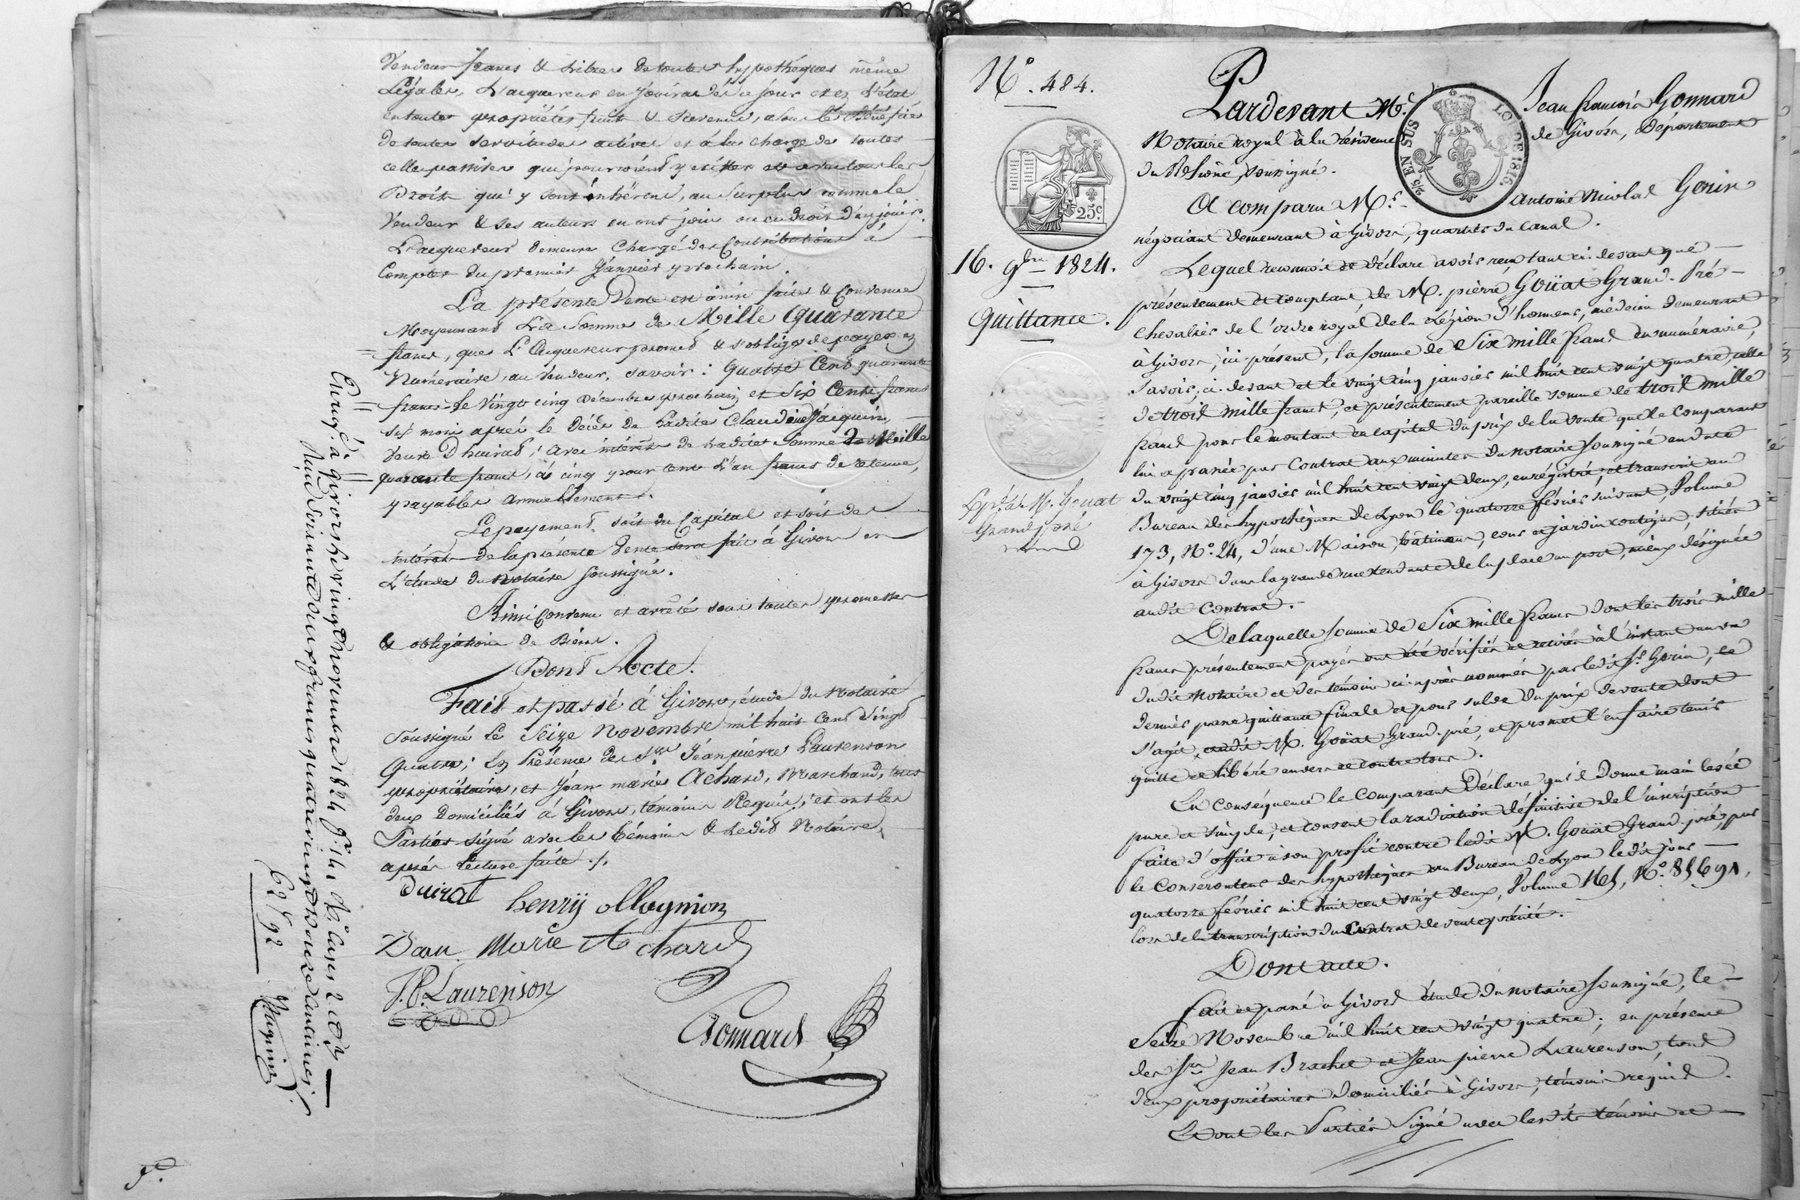 Vendeur francs & libres de toutes hypothéques même
Légales, L'acquereur en jouira dès ce jour et en l'état
en toutes propriétés fruit & Revenus, sous le Bénéfice
de toutes servitudes actives et à la charge de toutes
celles passives qui pourroient y exister et avec tous les
Droits qui y sont inhérens, au surplus comme le
Vendeur & ses auteurs en ont joui ou eu droit d'en jouir.
L'acquereur demeure chargé des Contributions à
Compter du premier Janvier prochain.
La présente Vente est ainsi faite & Convenue
Moyennant La Somme de Mille Quarante
francs, que L'Acquereur promet & s'oblige de payer en
Numéraire, au Vendeur, savoir : Quatre Cent quarante
francs le Vingt cinq décembre prochain et Six Cents francs
six mois après le décès de Ladite Claudine Jacquin,
Veuve Duirat, avec intérêt de Ladite Somme de Mille
quarante francs, à cinq pour cent l'an francs de retenue,
payables annuellement.
Le payement soit du Capital et soit des
intérêts de la présente Vente sera fait à Givors en
L'étude du Notaire soussigné.
Ainsi Convenu et arrêté sous toutes promesses
& obligations de Biens.
Dont Acte.
Fait et passé à Givors, étude du Notaire
soussigné Le Seize Novembre mil huit Cent Vingt
Quatre; En Présence de Srs Jean pierre Laurenson
propriétaire, et Jean marie Achard, Marchand, tous
deux domiciliés à Givors, témoins Requis; et ont les
Parties signé avec les témoins & Ledit Notaire,
après Lecture faite ./.
Duirat henry ollagnion
Jean Marie Achard
J. P. Laurenson
Gonnard
Enreg.é à Givors le vingt Novembre 1824 f.° 141 R.° cases 2 et
62 f 92
N.° 484.
25 c
16. 9bre 1824.
Quittance.
Exp. à M. Goüat
Grand pré
Pardevant Me Jean françois Gonnard
Notaire royal à la résidence de Givors, Département
du Rhône, soussigné.
EN SUS
LOI DE 1816.
A comparu M.r Antoine Nicolas Gorin
négociant demeurant à Givors, quartier du canal.
Lequel reconnoit et déclare avoir reçu tant ci-devant que
présentement et comptant, de M. pierre Goüat Grand-Pré
chevalier de l'ordre royal de la Légion d'honneur, médecin demeurant
à Givors, ici présent, la somme de Six mille francs en numéraire,
savoir, ci-devant et le vingt cinq janvier mil huit cent vingt quatre celle
de trois mille francs, et présentement pareille somme de trois mille
francs pour le montant en capital du prix de la vente que le comparant
lui a passée par Contrat aux minutes du notaire soussigné en date
du vingt cinq janvier mil huit cent vingt deux, enregistré, et transcrit au
Bureau des hypothèques de Lyon le quatorze février suivant, Volume
173, N.° 24, d'une Maison, bâtimens, cour et jardin contigus, situés
à Givors dans la grande rue tendante de la place au port, mieux désignée
audit Contrat.
De laquelle somme de Six mille francs dont les trois mille
francs présentement payés ont été vérifiés et retirés à l'instant au vu
dudit Notaire et des témoins ci-après nommés par ledit Sr Gorin, ce
dernier passe quittance finale et pour solde du prix de vente dont
s'agit, audit M. Goüat Grand-pré, et promet l'en faire tenir
quitte et libéré envers et contre tous.
En conséquence le comparant Déclare qu'il Donne main levée
pure et simple, et consent la radiation définitive de l'inscription
faite d'office à son profit contre ledit M. Goüat Grand-pré, par
le Conservateur des hypothèques au Bureau de Lyon ledit jour
quatorze février mil huit cent vingt deux, Volume 161,
lors de la transcription du Contrat de vente précité.
Dont acte.
fait et passé à Givors étude du notaire soussigné, le
Seize Novembre mil huit cent vingt quatre; en présence
des Srs Jean Brachet et Jean pierre Laurenson, tous
deux propriétaires domiciliés à Givors, témoins requis.
Et ont les Parties Signé avec lesdits témoins et